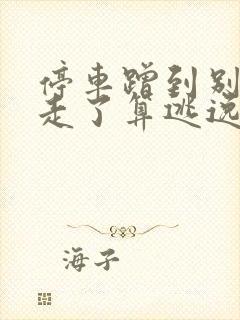 停車蹭到别
走了算逃逸
海子